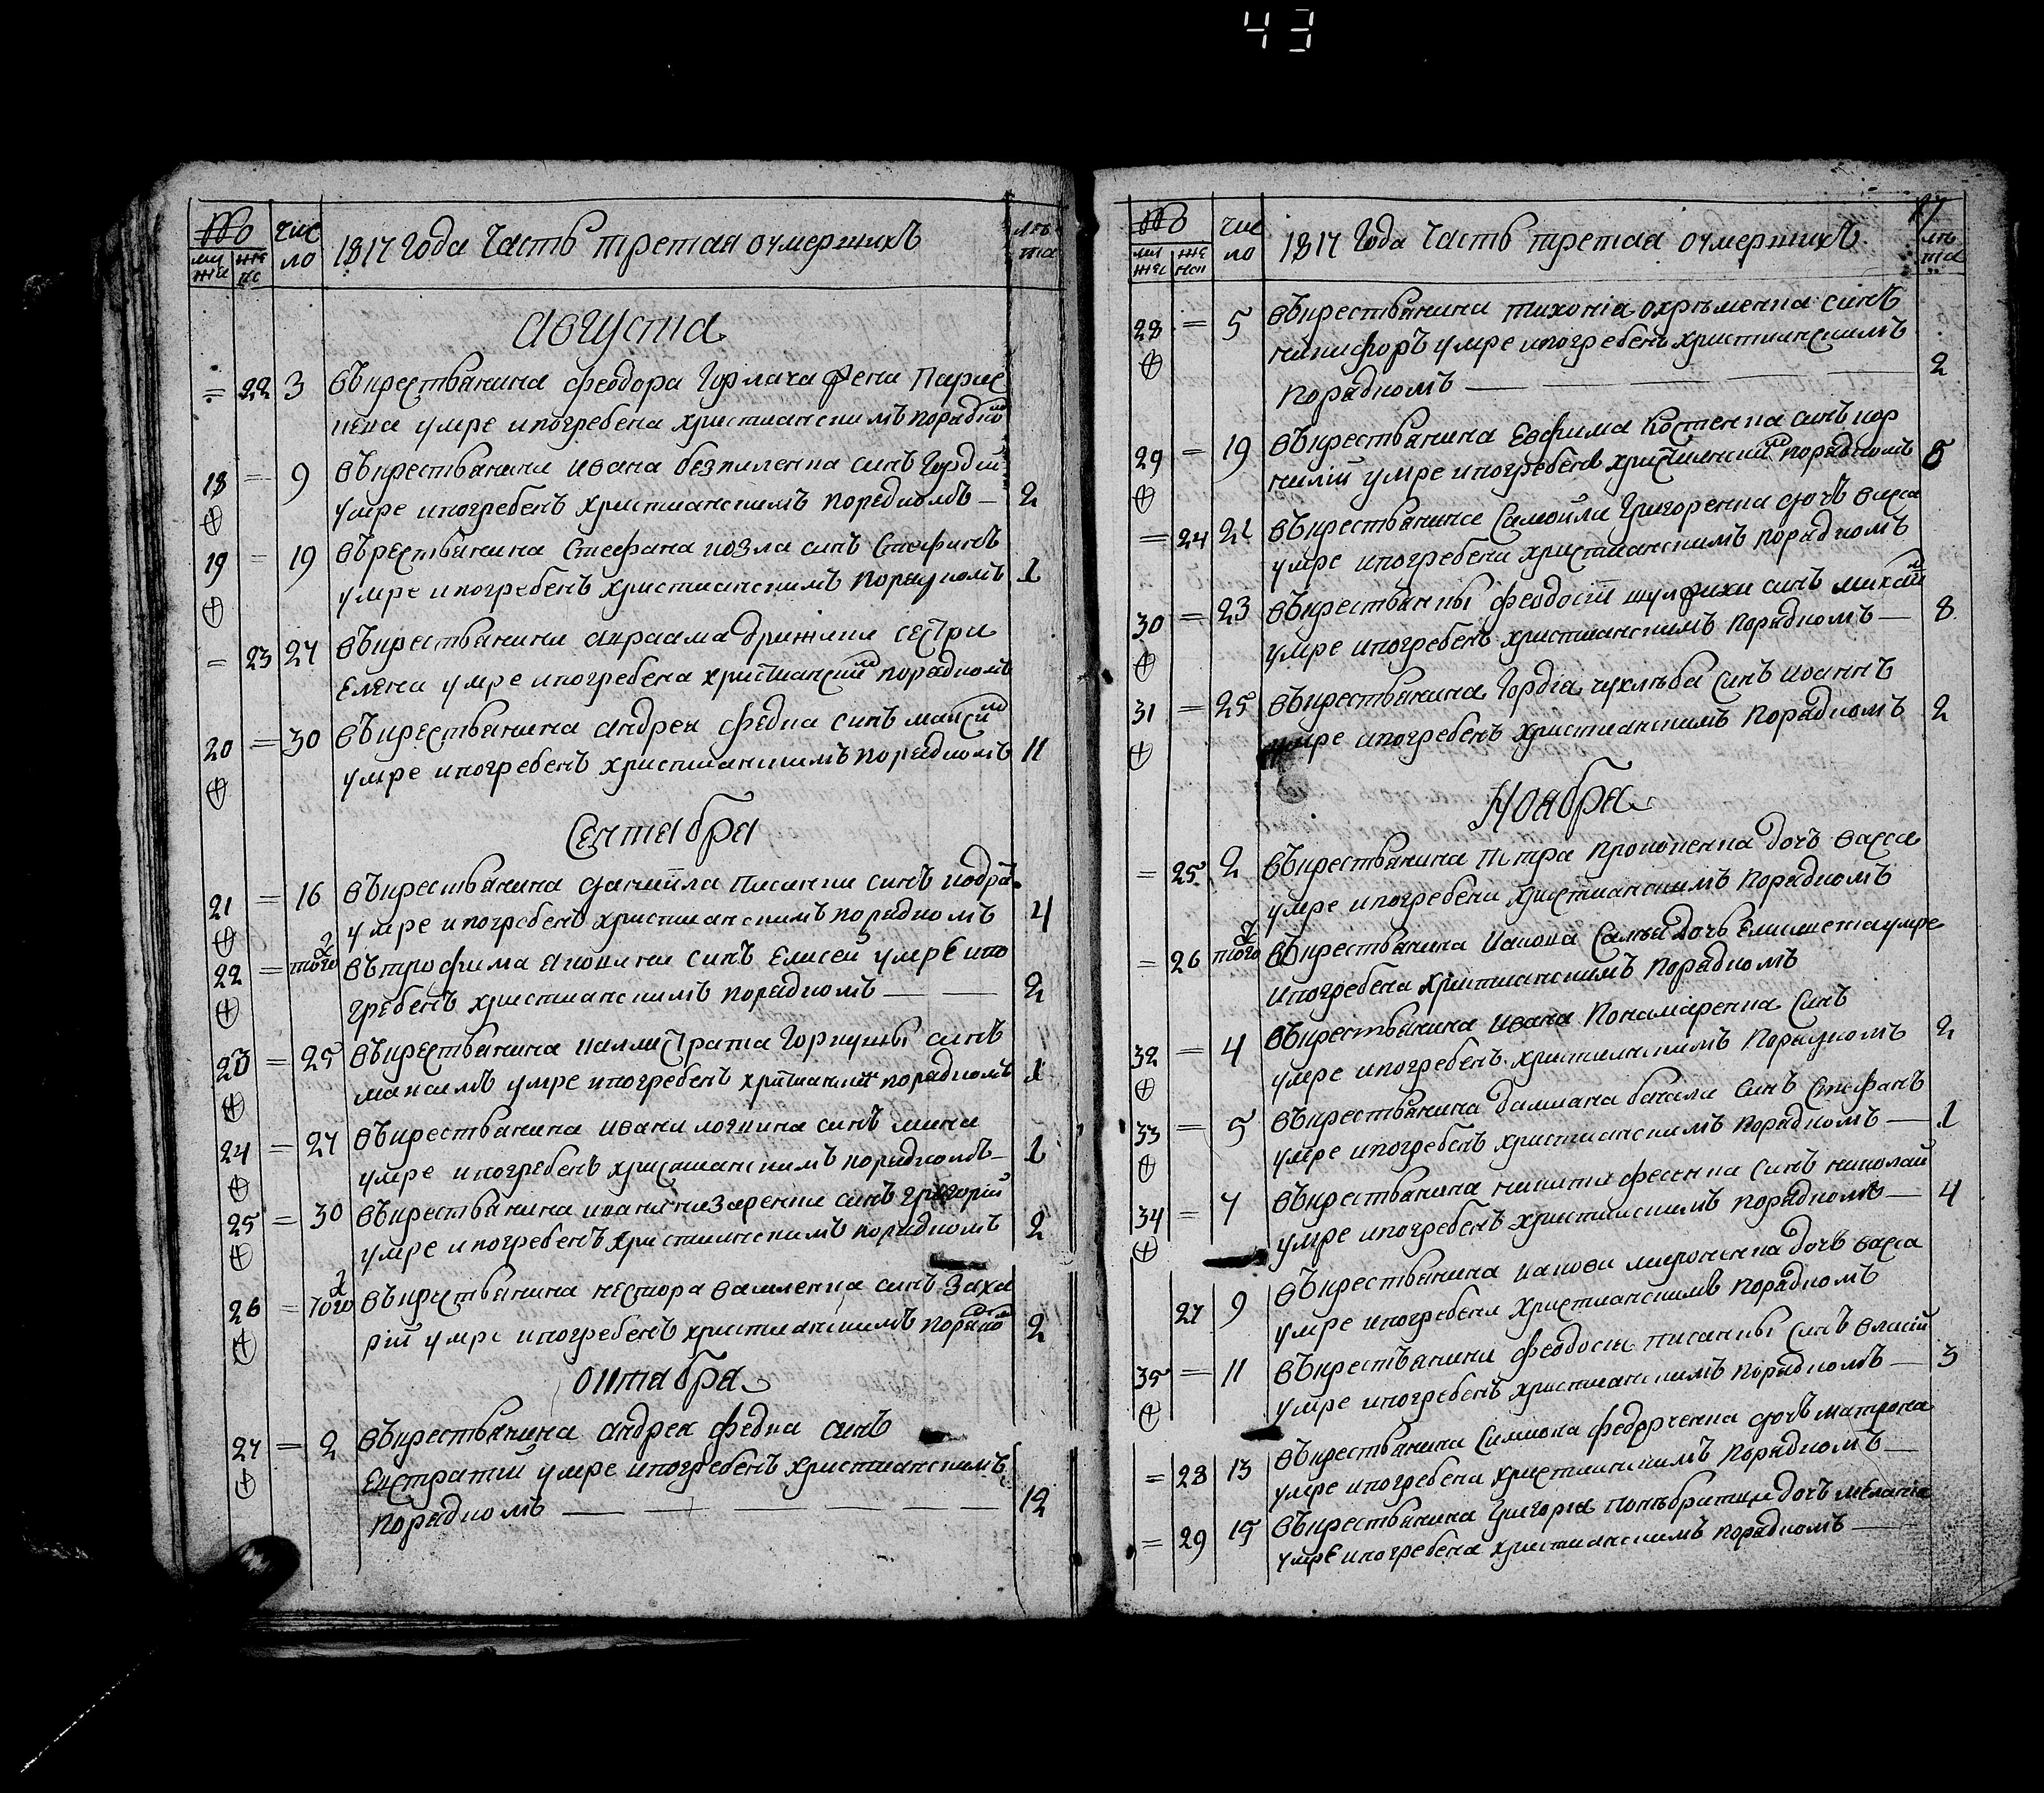 43
№ чис 1817 Года Часть третая оумершихъ лѣ
му же ло та
жес нс
Августа
= 22 3 Въкрестьянина Феодора Горлача жена Парас
кева умре ипогребена христианскимъ порядко
18 = 9 Въкрестьянина Ивана безпаленка синъ Гордій
умре ипогребенъ христианскимъ порядкомъ — 2
19 = 19 Въкрестьянина Стефана козла синъ Стефанъ
умре ипогребенъ христианскимъ порядкомъ 1
= 23 27 Въкрестьянина авраама дрижака сестра
Елена умре ипогребена христианским порядкомъ
20 = 30 Въкрестьянина андрея Федка синъ максим
умре ипогребенъ христианскимъ порядкомъ 11
Сентабра
21 = 16 Въкрестьянина даниила Писанки синъ кодра
умре ипогребенъ христианскимъ порядкомъ 4
22 = того Въ трофима синъ Елисей умре ипо
гребенъ христианскимъ порядкомъ — — 2
23 = 25 Въкрестьянина каллистрата Горкуши синъ
максимъ умре ипогребенъ христианским порядкомъ 1
24 = 27 Въкрестьянина ивана логвина синъ мина
умре ипогребенъ христианскимъ порядкомъ — 1
25 = 30 Въкрестьянина ивана назаренка синъ григорій
умре ипогребенъ христианскимъ порядкомъ 2
26 = того Въкрестьянина нестора василенка синъ Заха
рій умре ипогребенъ христианскимъ порядко 2
октабра
27 = 2 Въкрестьянина андрея федка синъ
Евстратій умре ипогребенъ христианскимъ
порядкомъ — — — — — 12
№ чис 1817 Года Часть третая оумершихъ лѣ
му же ло та
жес нск
28 = 5 Въкрестьянина тихона охрѣменка синъ
никифоръ умре ипогребенъ христианскимъ
порядкомъ — — — 2
29 = 19 Въкрестьянина Евфима Костенка синъ кор
нилій умре ипогребенъ христианским порядкомъ 5
= 24 21 Въкрестьянина Самойла Григоренка дочь васса
умре ипогребена христианскимъ порядкомъ
30 = 23 Въкрестьянкы феодосіи шулжихи синъ михаил
умре ипогребенъ христианскимъ порядкомъ — 8
31 = 25 Въкрестьянина Гордіа чухлѣба синъ иоаннъ
умре ипогребенъ христианскимъ порядкомъ 2
Ноабра
= 25 2 Въкрестьянина Петра Прокопенка дочь васса
умре ипогребена христианскимъ порядкомъ
= 26 того Въкрестьянина Иакова дочь Елисавета умре
ипогребена христианскимъ порядкомъ
32 = 4 Въкрестьянина ивана Понамаренка синъ
умре ипогребенъ христианскимъ порядкомъ 2
33 = 5 Въкрестьянина дамиана бакала синъ Стефанъ
умре ипогребенъ христианскимъ порядкомъ — 1
34 = 7 Въкрестьянина никити фесенка синъ николай
умре ипогребенъ христианскимъ порядкомъ — 4
27 9 Въкрестьянина иакова мироненка дочь васса
умре ипогребена христианскимъ порядкомъ
35 = 11 Въкрестьянина феодосиа писанкы синъ власій
умре ипогребенъ христианскимъ порядкомъ — 3
= 28 13 Въкрестьянина Симиона федорченка дочь матрона
умре ипогребена христианскимъ порядкомъ —
= 29 15 Въкрестьянина Григорія дочь меланіа
умре ипогребена христианскимъ порядкомъ —